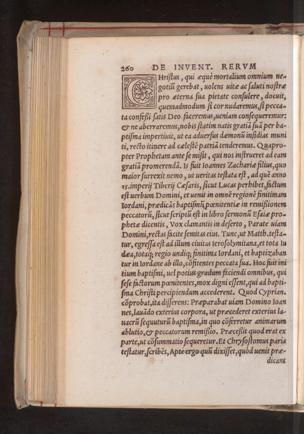 260 DE INVENT. RERVM
CHristus, qui æquè mortalium omnium ne
gotiũ gerebat, uolens uitæ ac saluti nostræ
pro æterna sua pietate consulere, docuit,
quemadmodum si cor nudaremus, si pecca-
ta confessi satis Deo faceremus, ueniam consequeremur:
& ne aberraremus, nobis statim natis gratiã suã per ba-
ptisma impertiuit, ut ea aduersus dæmonũ insidias muni
ti, recto itinere ad cælestẽ patriã tenderemus. Quapro-
pter Prophetam ante se misit, qui nos instrueret ad eam
gratiã promerendã. Is fuit Ioannes Zachariæ filius, quo
maior surrexit nemo, ut ueritas testata est, ad quẽ anno
15. imperij Tiberij Cæsaris, sicut Lucas perhibet, factum
est uerbum Domini, et uenit in omnẽ regionẽ finitimam
Iordani, prædicãs baptismũ pœnitentiæ in remissionem
peccatorũ, sicut scriptũ est in libro sermonũ Esaiæ pro-
phetæ dicentis, Vox clamantis in deserto, Parate uiam
Domini, rectas facite semitas eius. Tunc, ut Matth. testa-
tur, egressa est ad illum ciuitas ierosolymitana, et tota Iu
dæa, totaq́; regio undiq; finitima Iordani, et baptizaban
tur in Iordane ab illo, cõfitentes peccata sua. Hoc fuit ini
tium baptismi, uel potius gradum faciendi omnibus, qui
sese factorum pœnitentes, mox digni essent, qui ad bapti-
sma Christi percipiendum accederent. Quod Cyprian.
cõprobat, ita differens: Præparabat uiam Domino Ioan
nes, lauãdo exterius corpora, ut præcederet exterius la-
uacrũ sequuturũ baptisma, in quo cõferretur animarum
ablutio, & peccatorum remissio. Præcessit quod erat ex
parte, ut cõsummatio sequeretur. Et Chrysostomus paria
testatur, scribẽs, Aptè ergo quũ dixisset, quòd uenit præ-
dicant